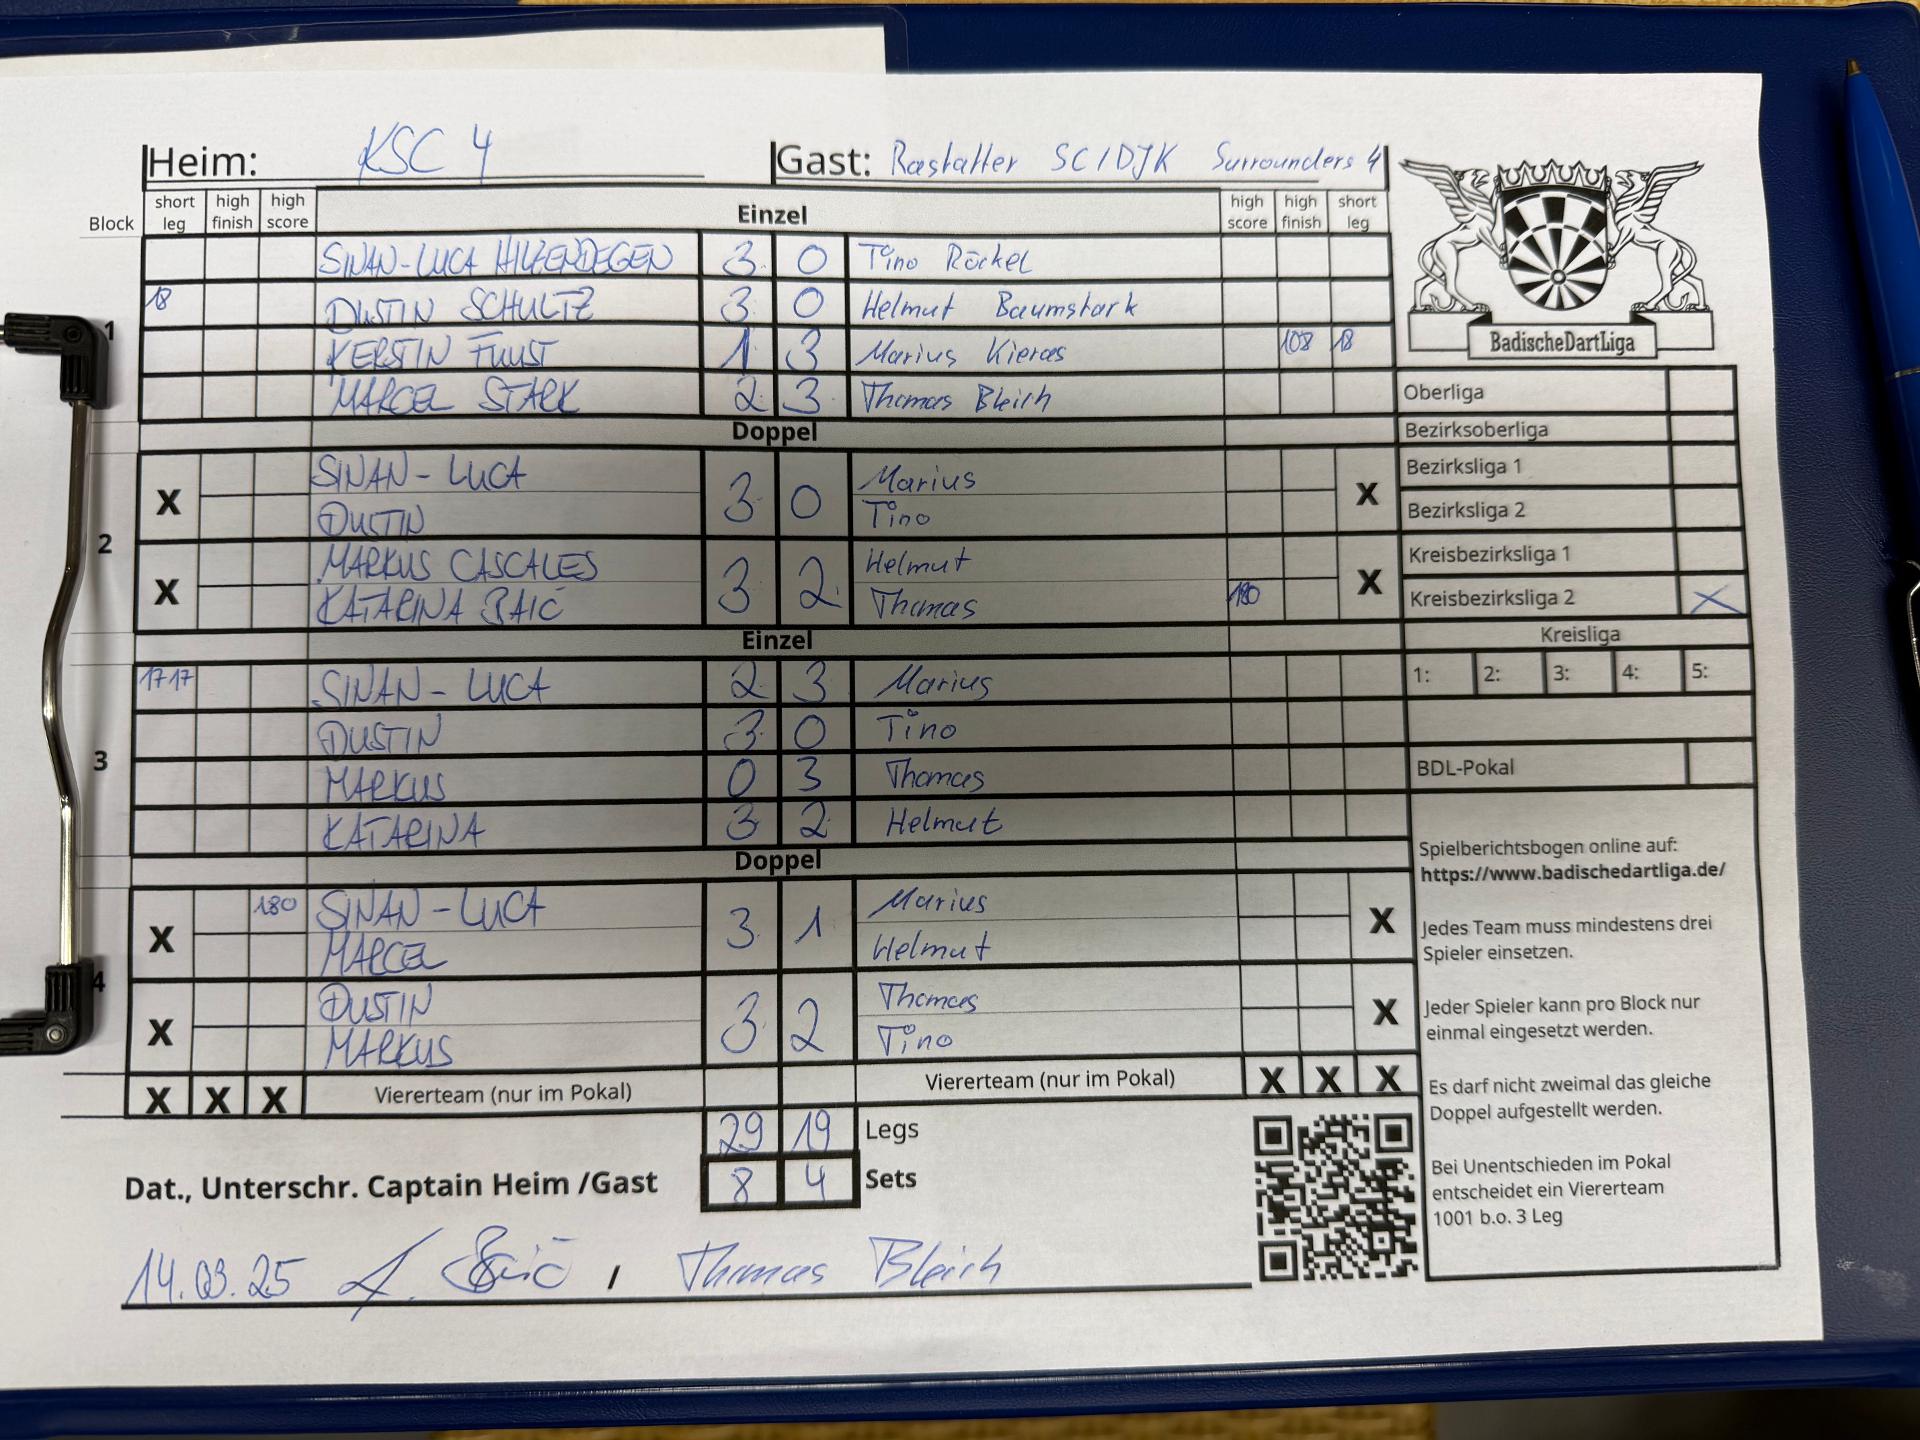 Heim: KSC 4 Gast: Rastatter SC/DJK Surrounders 4
Block short leg high finish high score Einzel high score high finish short leg
SINAN-LUCA HILZENDEGEN 3 0 Tino Röckel
18 DUSTIN SCHULTZ 3 0 Helmut Baumstark
1
KERSTIN FUUST 1 3 Marius Kieras 108 18
MARCEL STARK 2 3 Thomas Bleich
Doppel
SINAN-LUCA Marius
X 3 0 X
DUSTIN Tino
2
MARKUS CASCALES Helmut
X 3 2 X
KATARINA BAIĆ Thomas 180
Einzel
17 17 SINAN-LUCA 2 3 Marius
DUSTIN 3 0 Tino
3
MARKUS 0 3 Thomas
KATARINA 3 2 Helmut
Doppel
180 SINAN-LUCA Marius
X 3 1 X
MARCEL Helmut
4
DUSTIN Thomas
X 3 2 X
MARKUS Tino
X X X Viererteam (nur im Pokal) Viererteam (nur im Pokal) X X X
29 19 Legs
Dat., Unterschr. Captain Heim /Gast 8 4 Sets
14.03.25 Baić / Thomas Bleich
BadischeDartLiga
Oberliga
Bezirksoberliga
Bezirksliga 1
Bezirksliga 2
Kreisbezirksliga 1
Kreisbezirksliga 2 X
Kreisliga
1: 2: 3: 4: 5:
BDL-Pokal
Spielberichtsbogen online auf:
https://www.badischedartliga.de/
Jedes Team muss mindestens drei
Spieler einsetzen.
Jeder Spieler kann pro Block nur
einmal eingesetzt werden.
Es darf nicht zweimal das gleiche
Doppel aufgestellt werden.
Bei Unentschieden im Pokal
entscheidet ein Viererteam
1001 b.o. 3 Leg